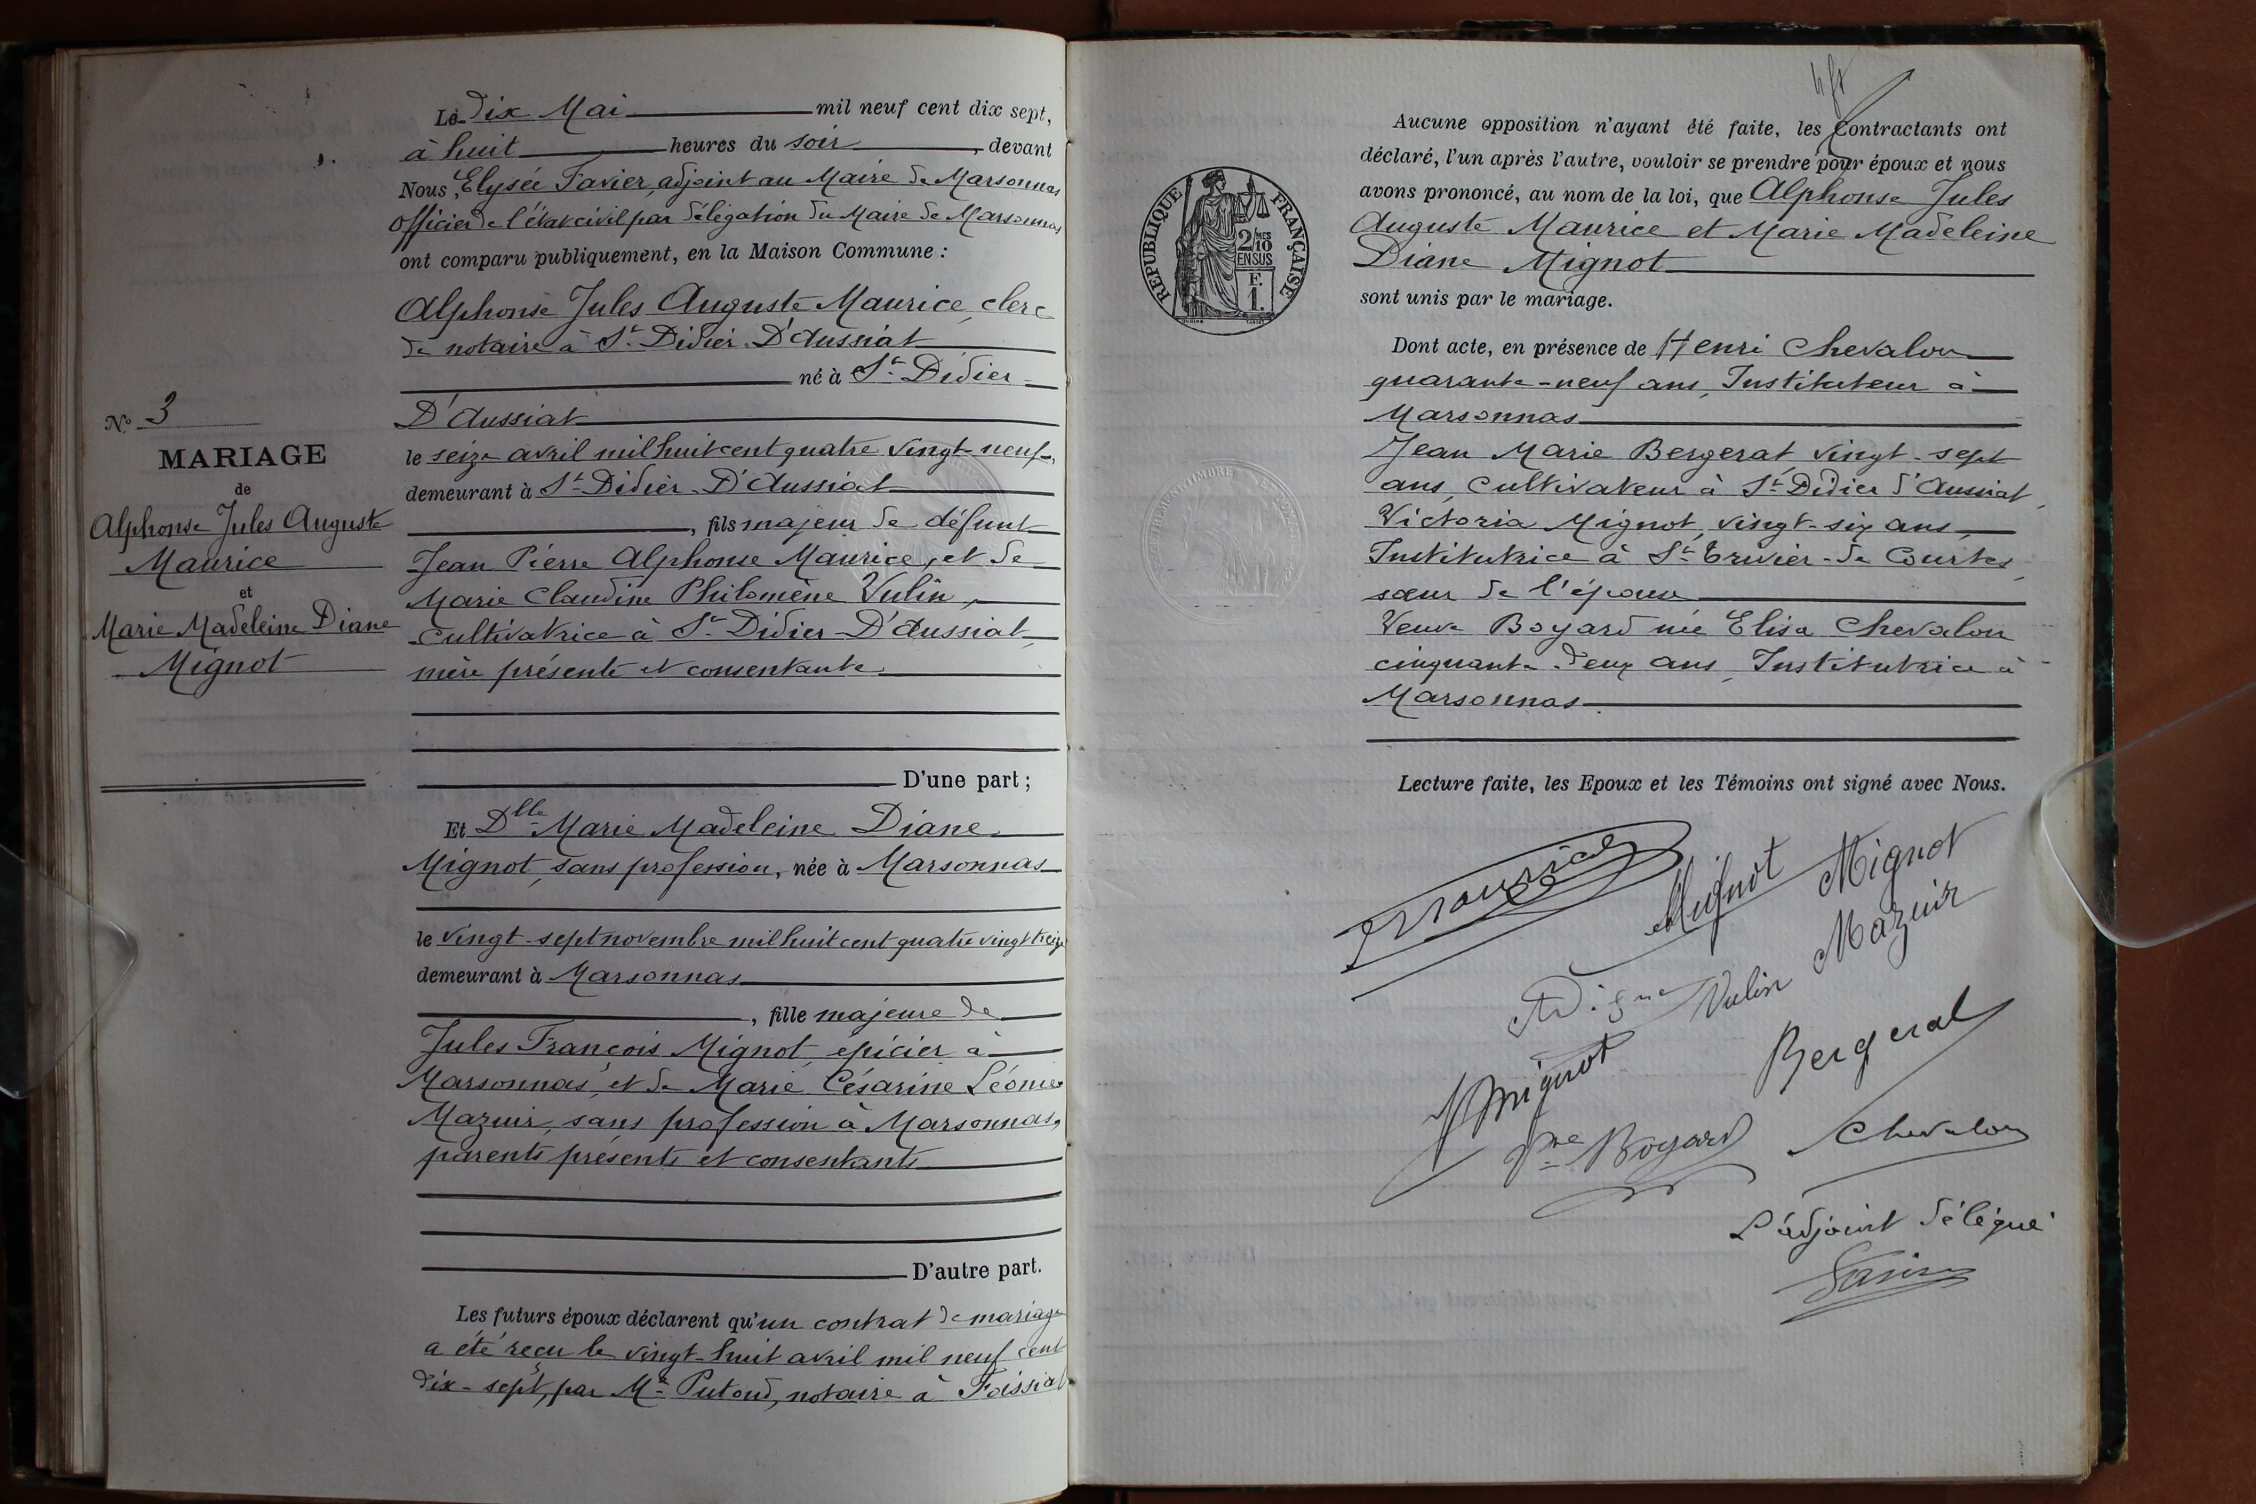 Le dix Mai mil neuf cent dix sept,
à huit heures du soir, devant
Nous, Elysée Favier, adjoint au Maire de Marsonnas
officier de l'état civil par délégation du Maire de Marsonnas
ont comparu publiquement, en la Maison Commune :
Alphonse Jules Auguste Maurice, clerc
de notaire à St Didier D'Aussiat
né à St Didier
D'Aussiat
le seize avril mil huit cent quatre vingt-neuf,
demeurant à St Didier D'Aussiat
, fils majeur de défunt
Jean Pierre Alphonse Maurice, et de
Marie Claudine Philomène Vulin,
cultivatrice à St Didier-D'Aussiat,
mère présente et consentante.
D'une part ;
Et Dlle Marie Madeleine Diane
Mignot, sans profession, née à Marsonnas
le vingt-sept novembre mil huit cent quatre vingt treize
demeurant à Marsonnas
, fille majeure de
Jules François Mignot, épicier à
Marsonnas, et de Marie Césarine Léonie
Mazuir, sans profession à Marsonnas,
parents présents et consentants
D'autre part.
Les futurs époux déclarent qu'un contrat de mariage
a été reçu le vingt-huit avril mil neuf cent
dix-sept, par Me Putoud, notaire à Foissiat
N° 3
MARIAGE
de
Alphonse Jules Auguste
Maurice
et
Marie Madeleine Diane
Mignot
Aucune opposition n'ayant été faite, les Contractants ont
déclaré, l'un après l'autre, vouloir se prendre pour époux et nous
avons prononcé, au nom de la loi, que Alphonse Jules
Auguste Maurice et Marie Madeleine
Diane Mignot
sont unis par le mariage.
RÉPUBLIQUE FRANÇAISE
2/10 MES
EN SUS
F.
1.
Dont acte, en présence de Henri Chevalon
quarante-neuf ans, Instituteur à
Marsonnas
Jean Marie Bergerat vingt-sept
ans, cultivateur à St Didier d'Aussiat,
Victoria Mignot, vingt-six ans,
Institutrice à St Trivier-de Courtes,
sœur de l'épouse
Veuve Boyard née Elisa Chevalon
cinquante-deux ans, Institutrice à
Marsonnas
Lecture faite, les Epoux et les Témoins ont signé avec Nous.
Maurice
Mignot
Mignot
Mazuir
Vulin
Mignot
Bergerat
Vve Boyard
Chevalon
L'adjoint délégué
Favier